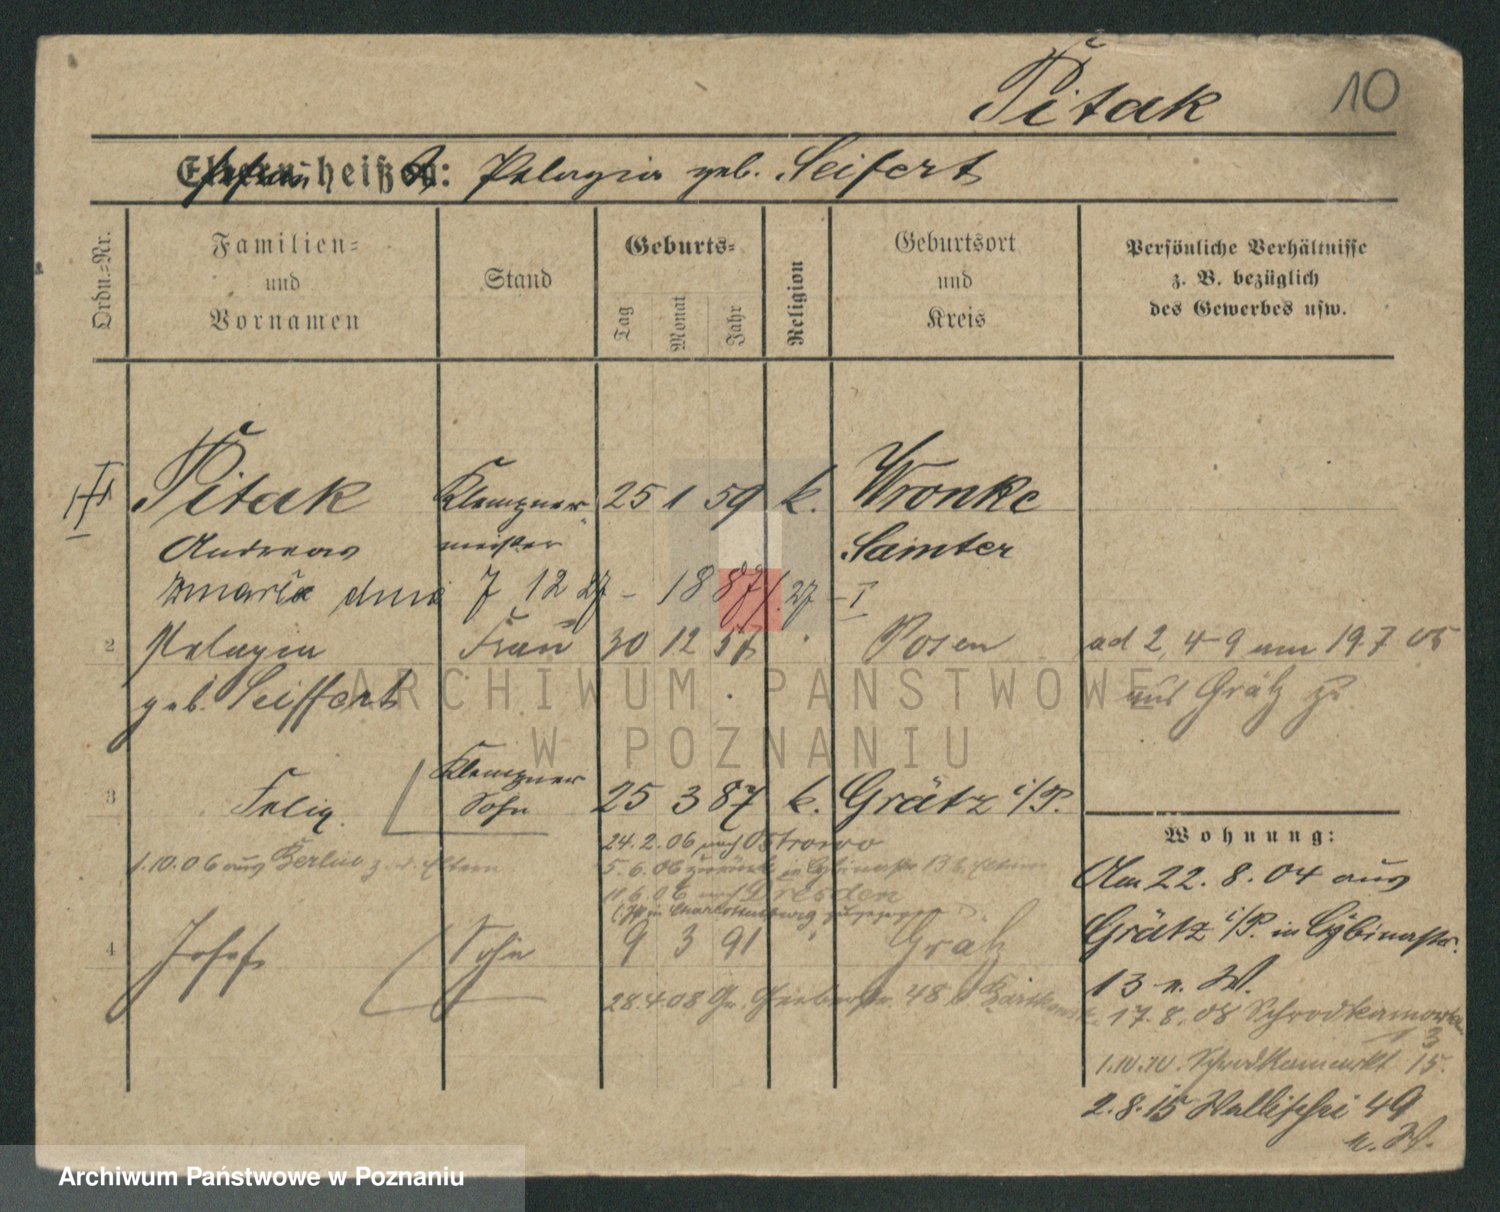 Pitak 10
heißen: Pelagia geb. Seifert
Ordn.-Nr.
Familien-
und
Vornamen
Stand
Geburts-
Tag
Monat
Jahr
Religion
Geburtsort
und
Kreis
Persönliche Verhältnisse
z. B. bezüglich
des Gewerbes usw.
Pitak Klempner- 25 1 59 k. Wronke
Andreas meister Samter
7 12 27 - 1887/.27 - I
2 Pelagia Frau 30 12 57 Posen ad 2, 4-9 am 19.7 05
geb. Seiffert aus Grätz zu
ARCHIWUM PAŃSTWOWE
W POZNANIU
Klempner
3 Felix Sohn 25 3 87 k. Grätz i/P.
24.2.06 nach Ostrowo
1.10.06 aus Berlin z. d. Eltern
5.6.06 zurück 13 b. Eltern
11.6.06 nach Dresden
in Charlottenburg
4 Josef Sohn 9 3 91 Grätz
28.4.08 Gr. Gerberstr. 48 b
Wohnung:
Am 22.8.04 aus
Grätz i/P. in Cybinastr.
13 n. W.
17.8.08
3
1.10.10. Schrodkamarkt 15.
2.8.15 Wallischei 49
n. W.
Archiwum Państwowe w Poznaniu